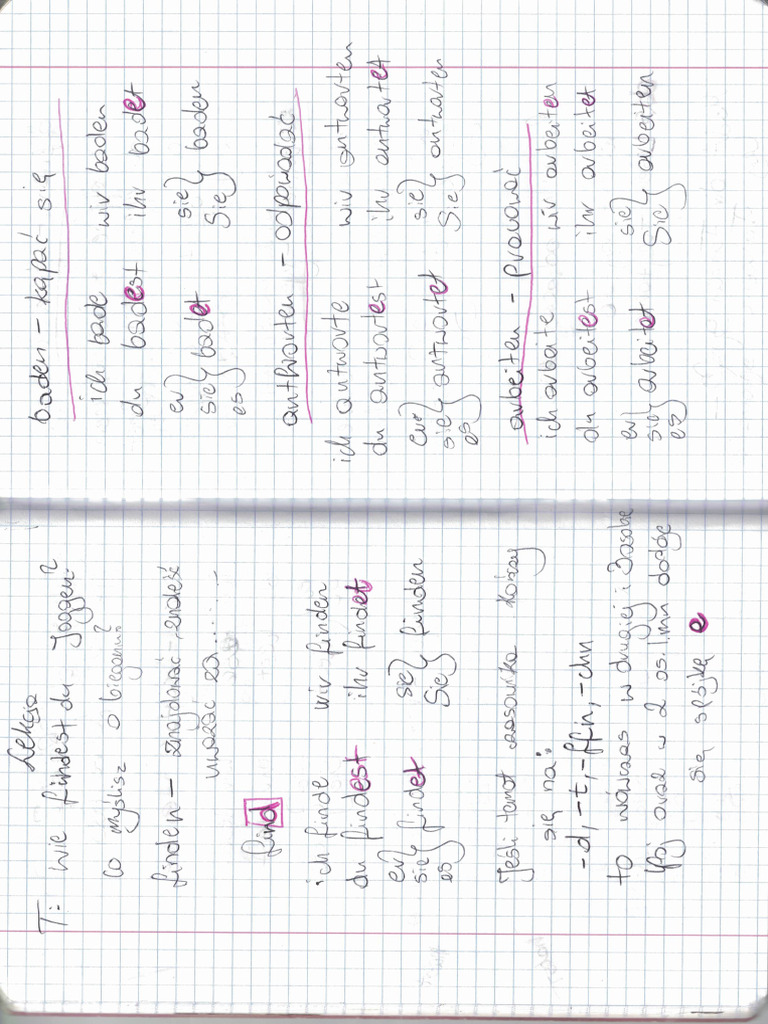 Lekcja
T: Wie findest du Joggen?
Co myślisz o bieganiu?
finden – znajdować, znaleść
uważać za.......
find
ich finde wir finden
du findest ihr findet
er
sie } findet sie } finden
es Sie
Jeśli temat czasownika kończy
się na:
-d, -t, -ffn, -chn
to wówczas w drugiej i 3 osobie
lpoj oraz w 2 os. l.mn dodaje
się spójkę e
baden – kąpać się
ich bade wir baden
du badest ihr badet
er
sie } badet sie } baden
es Sie
anthworten – odpowiadać
ich antworte wir antworten
du antwortest ihr antwortet
er
sie } antwortet sie } antworten
es Sie
arbeiten – pracować
ich arbeite wir arbeiten
du arbeitest ihr arbeitet
er
sie } arbeitet sie } arbeiten
es Sie